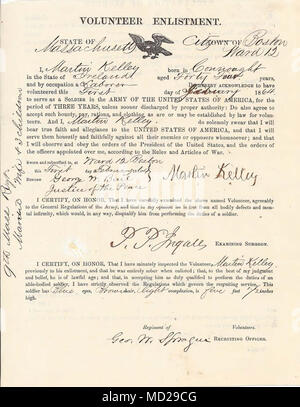 VOLUNTEER ENLISTMENT.
STATE OF Massachusetts
City TOWN OF Boston
Ward 12
I, Martin Kelley born in Connought
in the State of Ireland aged Forty Four years,
and by occupation a Laborer DO HEREBY ACKNOWLEDGE to have
volunteered this First day of February 1864
to serve as a SOLDIER in the ARMY OF THE UNITED STATES OF AMERICA, for the
period of THREE YEARS, unless sooner discharged by proper authority: Do also agree to
accept such bounty, pay, rations, and clothing, as are or may be established by law for volun-
teers. And I, Martin Kelley do solemnly swear that I will
bear true faith and allegiance to the UNITED STATES OF AMERICA, and that I will
serve them honestly and faithfully against all their enemies or opposers whomsoever; and that
I will observe and obey the orders of the President of the United States, and the orders of
the officers appointed over me, according to the Rules and Articles of War.
Sworn and subscribed to, at Ward 12 Boston
this First day of February 1864
BEFORE George W. Martin Kelley
Justice of the Peace
9th Mass Reg.
Married Wife & children
I CERTIFY, ON HONOR, That I have carefully examined the above named Volunteer, agreeably
to the General Regulations of the Army, and that in my opinion he is free from all bodily defects and men-
tal infirmity, which would, in any way, disqualify him from performing the duties of a soldier.
EXAMINING SURGEON.
I CERTIFY, ON HONOR, That I have minutely inspected the Volunteer, Martin Kelley
previously to his enlistment, and that he was entirely sober when enlisted; that, to the best of my judgment
and belief, he is of lawful age; and that, in accepting him as duly qualified to perform the duties of an
able-bodied soldier, I have strictly observed the Regulations which govern the recruiting service. This
soldier has Blue eyes, Brown hair, light complexion, is five feet 7 inches
high.
Regiment of Volunteers.
Geo. W. Sprague RECRUITING OFFICER.
alamy
Image ID: MD29CG
www.alamy.com